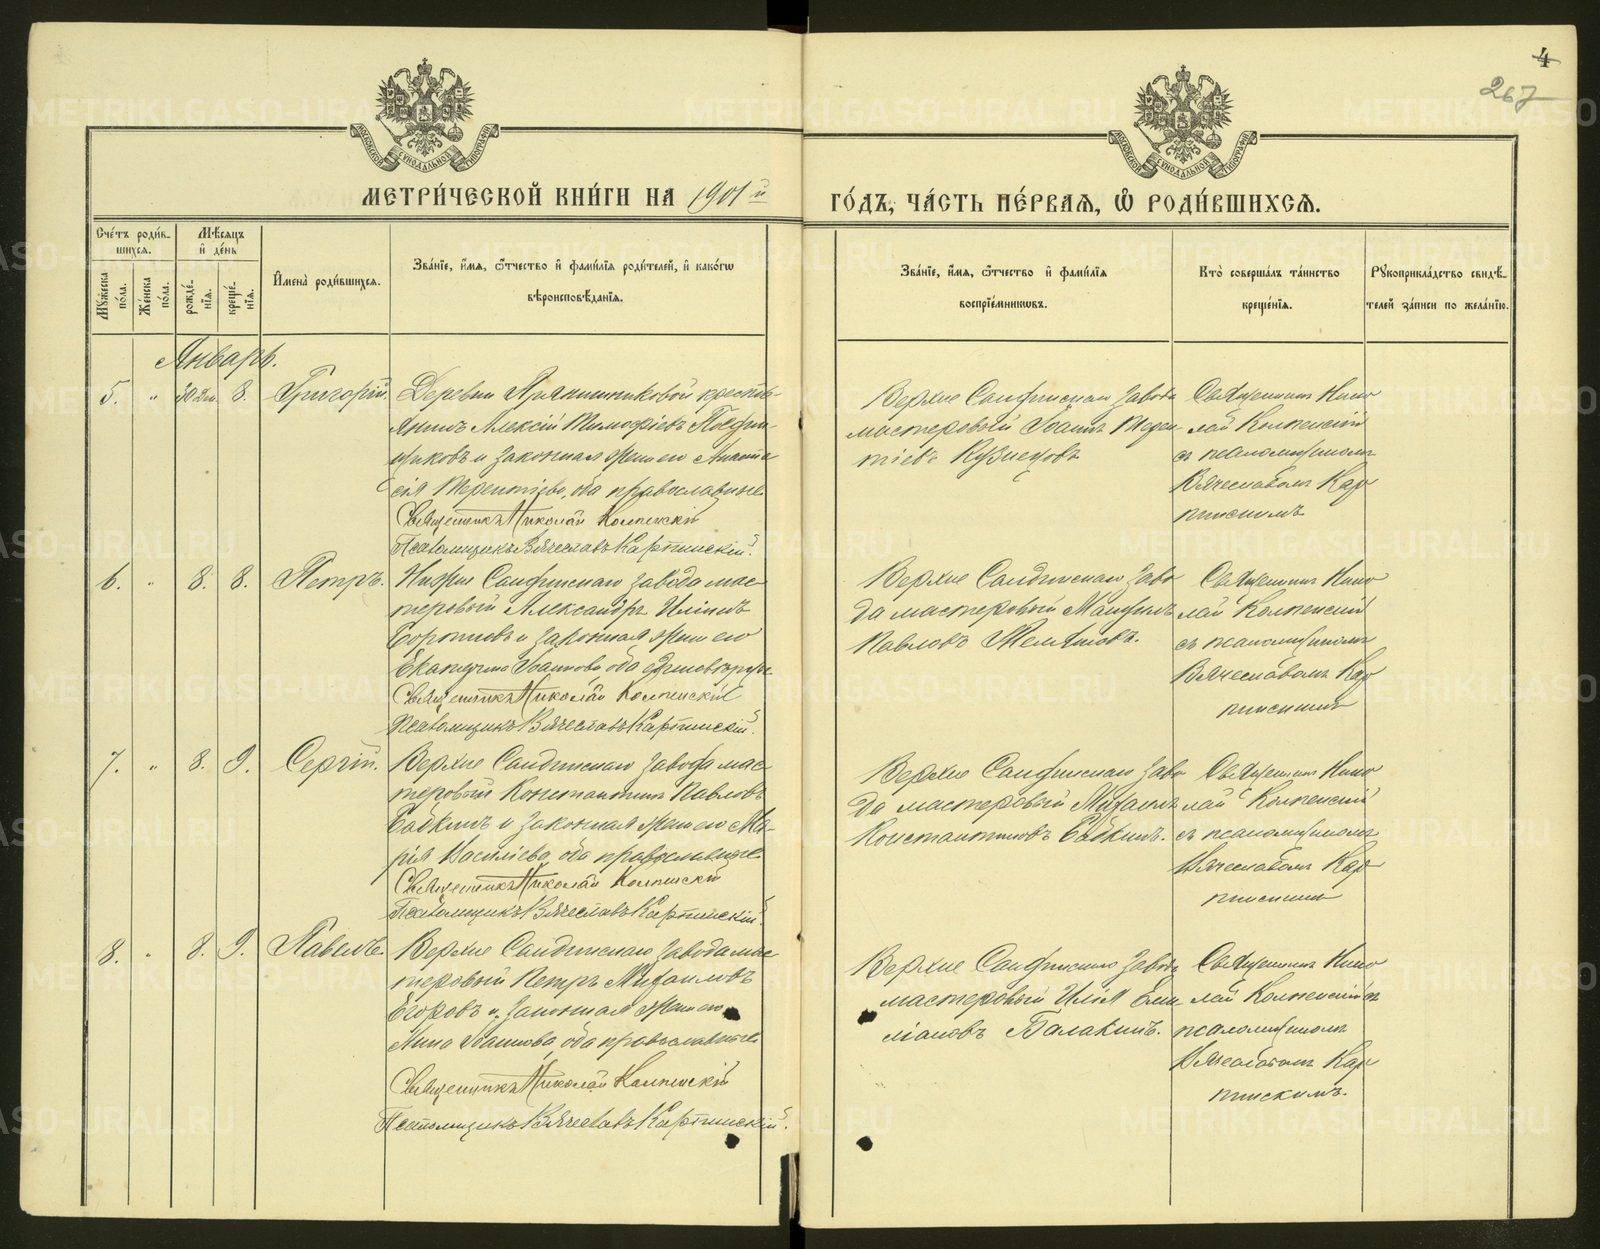 4
267
МЕТРИ́ЧЕСКОЙ КНИ́ГИ НА 1901й ГО́ДЪ, ЧА́СТЬ ПЕ́РВАЯ, Ѽ РОДИ́ВШИХСЯ.
Сче́тъ роди́в-
шихся.
Му́жеска по́ла.
Же́нска по́ла.
Мѣ́сяцъ и де́нь
рожде́-
нїя.
креще́-
нїя.
Имена̀ роди́вшихся.
Зва́нїе, и́мя, ѻ́тчество и фами́лїя роди́телей, и како́гѡ
вѣроисповѣ́данїя.
Зва́нїе, и́мя, ѻ́тчество и фами́лїя
воспрїе́мникѡвъ.
Кто̀ соверша́лъ та́инство
креще́нїя.
Рукоприкла́дство свидѣ́-
телей за́писи по жела́нїю.
Январь.
5. " 8. Григорій.
Деревни крестья-
янинъ Алексій Тимофіевъ
и законная жена его Анаста-
сія Терентіева, оба православные
Священникъ Николай Колпенскій
Псаломщикъ Вячеславъ Карпинскій.
Верхне Салдинскаго завода
мастеровый Іоаннъ Терен-
тіевъ Кузнецовъ
Священникъ Нико
лай Колпенскій
съ псаломщикомъ
Вячеславомъ Кар
пинскимъ
6. " 8. 8. Петръ.
Нижне Салдинскаго завода мас-
теровый Александръ Иліинъ
и законная жена его
Екатерина Іоаннова оба единовѣрцы
Священникъ Николай Колпенскій
Псаломщикъ Вячеславъ Карпинскій.
Верхне Салдинскаго заво
да мастеровый
Павловъ
Священникъ Нико
лай Колпенскій
съ псаломщикомъ
Вячеславомъ Кар
пинскимъ
7. " 8. 9. Сергій.
Верхне Салдинскаго завода мас-
теровый Константинъ Павловъ
Бабкинъ и законная жена его Ма-
рія Василіева, оба православные
Священникъ Николай Колпенскій
Псаломщикъ Вячеславъ Карпинскій.
Верхне Салдинскаго заво
да мастеровый Михаилъ
Константиновъ Бабкинъ.
Священникъ Нико
лай Колпенскій
съ псаломщикомъ
Вячеславомъ Кар
пинскимъ
8. " 8. 9. Павелъ.
Верхне Салдинскаго завода мас-
теровый Петръ Михаиловъ
Егоровъ и законная жена его
Анна Іоаннова, оба православные
Священникъ Николай Колпенскій
Псаломщикъ Вячеславъ Карпинскій.
Верхне Салдинскаго завода
мастеровый Илія Еми
ліановъ Балакинъ.
Священникъ Нико
лай Колпенскій съ
псаломщикомъ
Вячеславомъ Кар
пинскимъ.
METRIKI.GASO-URAL.RU